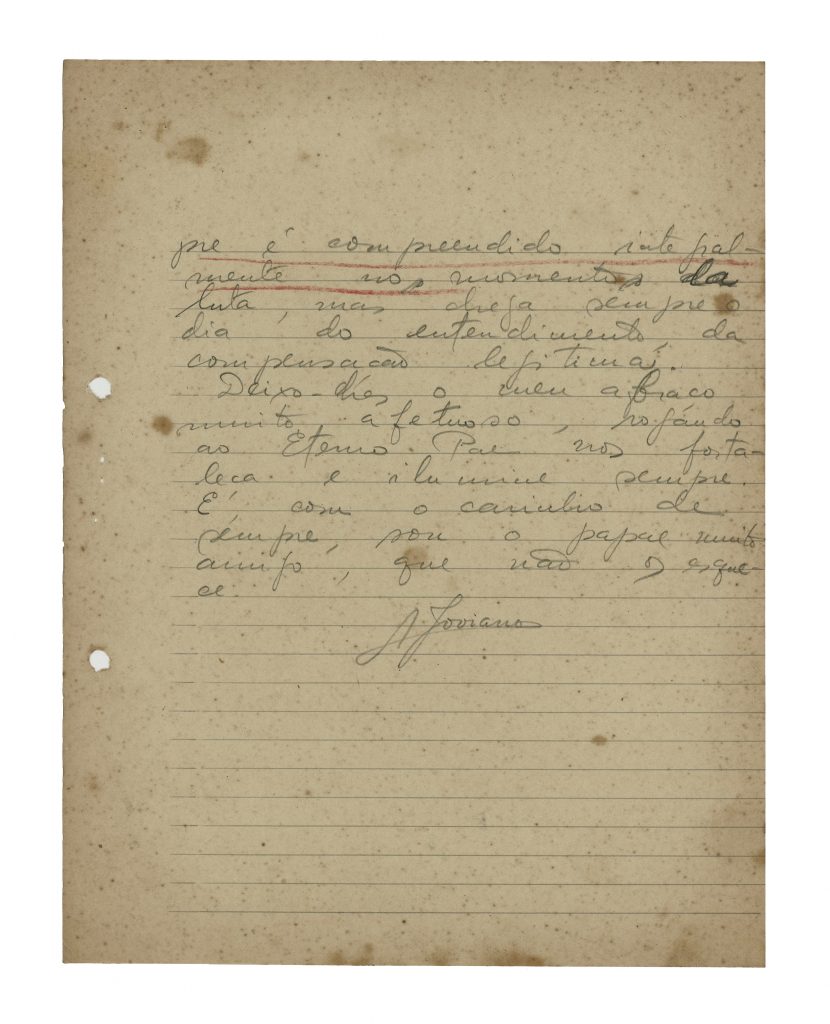 pre é compreendido integral-
mente nos momentos da
luta, mas chega sempre o
dia do entendimento, da
compensação legitima.
Deixo-lhes o meu abraco
muito afetuoso, rogando
ao Eterno Pae nos forta-
leca e ilumine sempre.
E, com o carinho de
sempre, sou o papae muito
amigo, que não os esque-
ce.
A Joviano